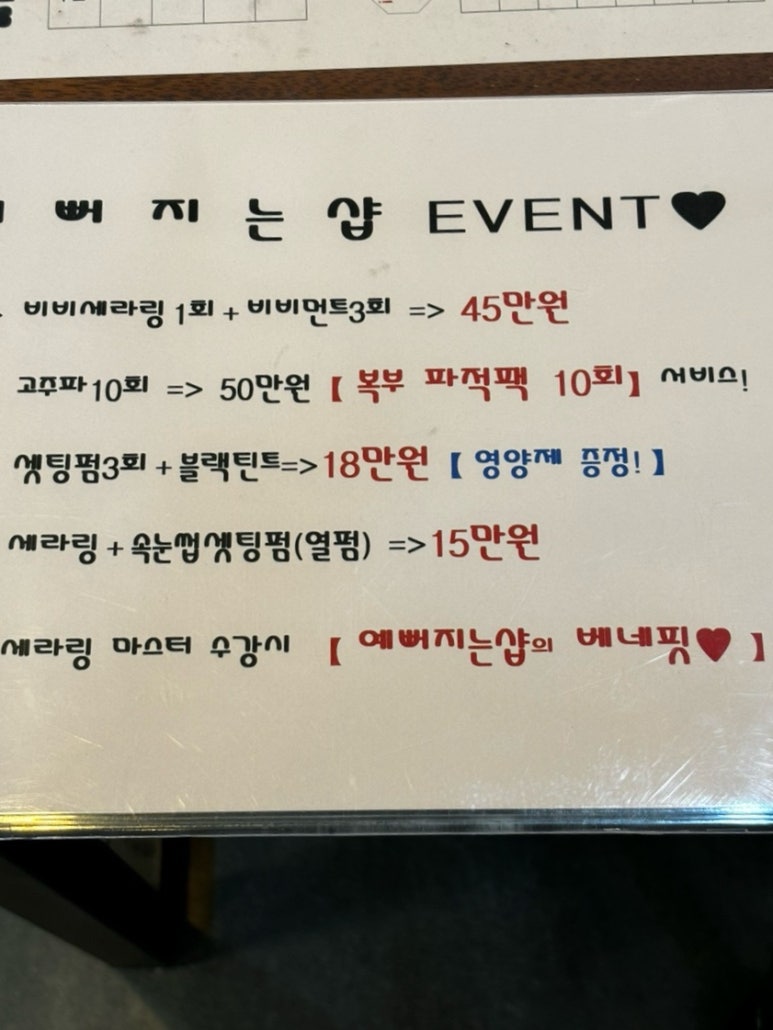 뻐 지 는 샵 EVENT♥
비비세라링 1회 + 비비먼트3회 => 45만원
고주파10회 => 50만원 【 복부 파적팩 10회】 서비스!
셋팅펌3회 + 블랙틴트=>18만원 【 영양제 증정! 】
세라링 + 속눈썹셋팅펌(열펌) =>15만원
세라링 마스터 수강시 【 예뻐지는샵의 베네핏♥ 】